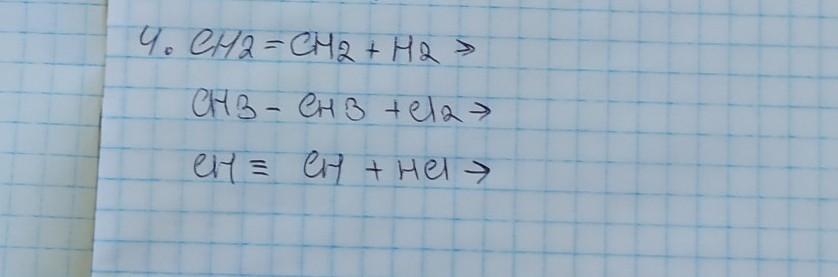 4. CH2=CH2+H2→
CH3-CH3+Cl2→
CH≡CH+HCl→